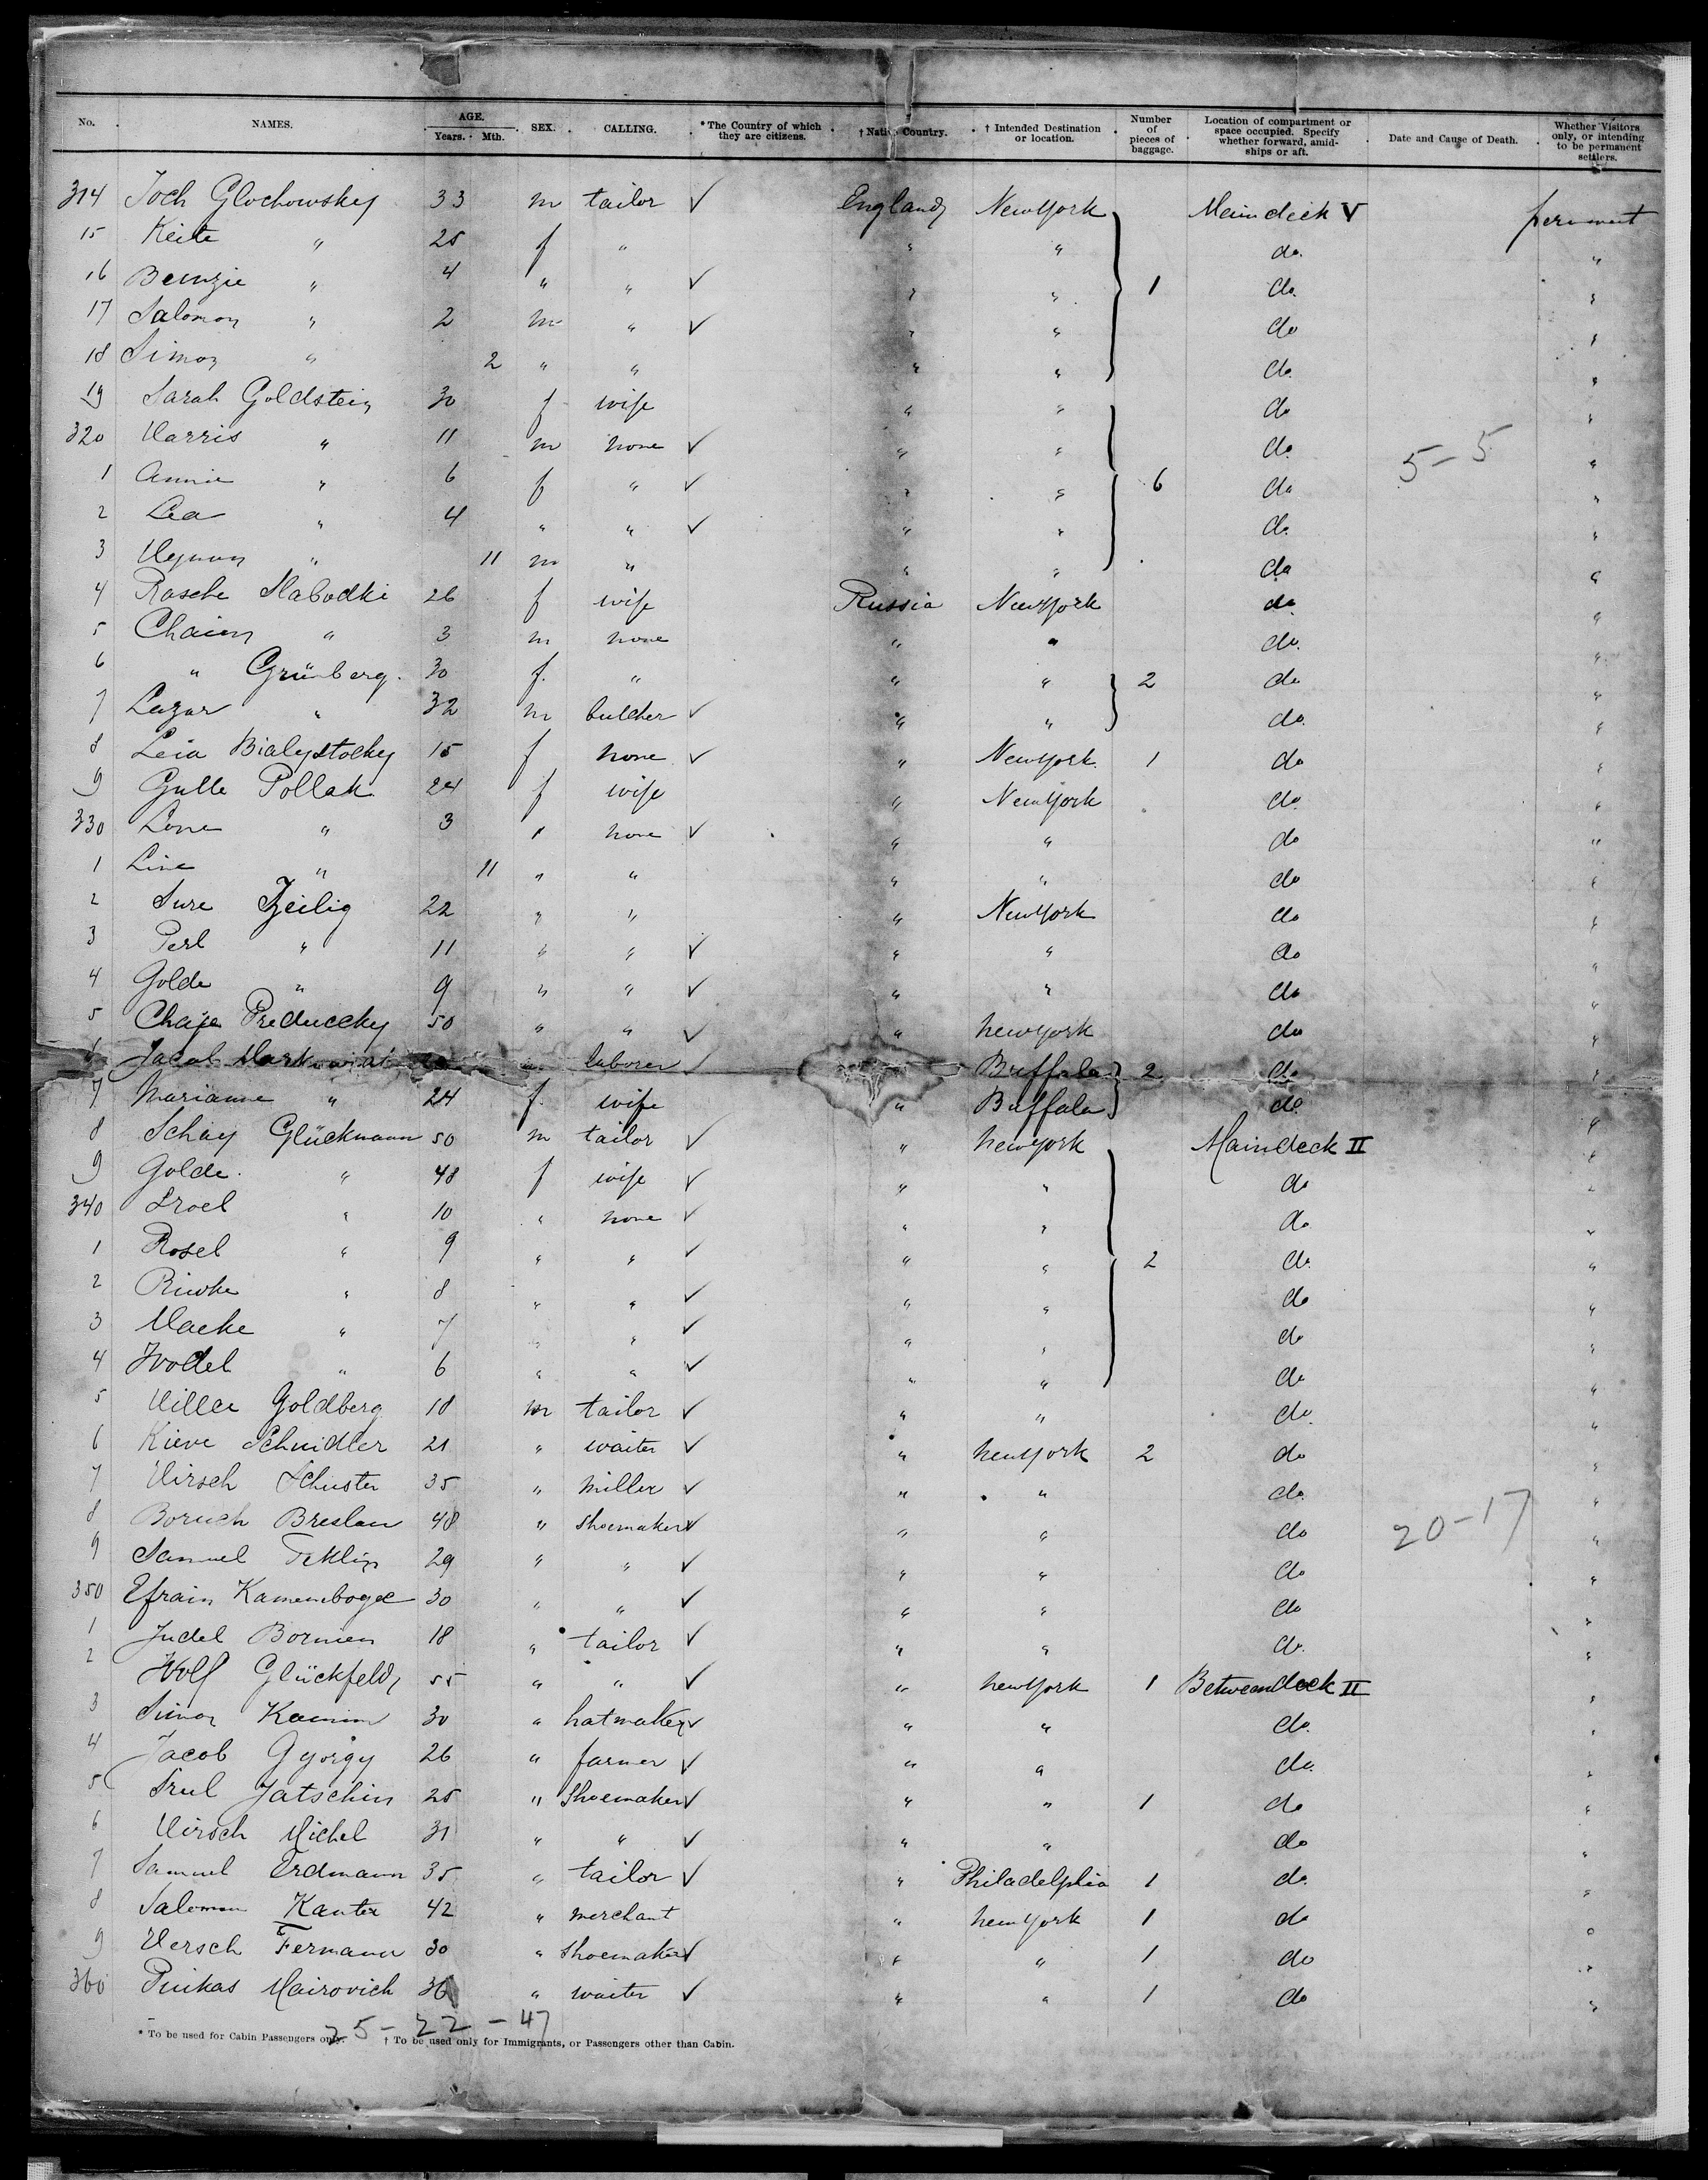 No. NAMES. AGE. Years. Mth. SEX. CALLING. *The Country of which they are citizens. † Native Country. † Intended Destination or location. Number of pieces of baggage. Location of compartment or space occupied. Specify whether forward, amidships or aft. Date and Cause of Death. Whether Visitors only, or intending to be permanent settlers.
314 Joch Glochowskey 33 m tailor ✓ England New York Maindeck V permanent
15 Keite " 25 f " " " do. "
16 Beinzie " 4 " " ✓ " " 1 do. "
17 Salomon " 2 m " ✓ " " do "
18 Simon " 2 " " " " do. "
19 Sarah Goldstein 30 f wife " " do "
320 Harris " 11 m none ✓ " " do. "
5-5
1 Annie " 6 f " ✓ " " 6 do "
2 Lea " 4 " " ✓ " " do. "
3 Hyman " 11 m " " " do "
4 Rasche Slabodki 26 f wife Russia New York do. "
5 Chaim " 3 m none " " do. "
6 " Grünberg. 30 f. " " " 2 do "
7 Lazar " 32 m butcher ✓ " " do. "
8 Leia Bialystocky 15 f none ✓ " New York. 1 do "
9 Gulle Pollak 24 f wife " New York do. "
330 Lone " 3 " none ✓ " " do "
1 Line " 11 " " " " do "
2 Sure Zeilig 22 " " " New York do "
3 Perl " 11 " " ✓ " " do "
4 Golde " 9 " " ✓ " " do "
5 Chaje Preduccky 50 " " ✓ " new york do "
6 Jacob laborer ✓ Buffalo 2 do "
7 Marianne " 24 f. wife " Buffalo do. "
8 Schay Glückmann 50 m tailor ✓ " new york Maindeck II "
9 Golde. " 48 f wife ✓ " " do "
340 Sroel " 10 " none ✓ " " do "
1 Rosel " 9 " " ✓ " " 2 do. "
2 Riwke " 8 " " ✓ " " do "
3 Macke " 7 " " ✓ " " do "
4 Wodel " 6 " " ✓ " " do "
5 Hiller Goldberg 18 m tailor ✓ " " do. "
6 Kieve Schnidler 21 " waiter ✓ " new york 2 do "
7 Hirsch Schuster 35 " miller ✓ " " do. "
8 Boruch Breslau 48 " shoemaker ✓ " " do "
20-17
9 Samuel Teklin 29 " " ✓ " " do "
350 Efraim Kamenbogee 30 " " ✓ " " do "
1 Judel Bormen 18 " tailor ✓ " " do. "
2 Wolf Glückfeld 55 " " ✓ " new york 1 Betweendeck II "
3 Simon Kamm 30 " hatmaker ✓ " " do. "
4 Jacob György 26 " farmer ✓ " " do. "
5 Srul Jatschin 25 " Shoemaker ✓ " " 1 do "
6 Hirsch Michel 31 " " ✓ " " do "
7 Samuel Erdmann 35 " tailor ✓ " Philadelphia 1 do. "
8 Salomon Kanter 42 " merchant " new york 1 do "
9 Hersch Fermann 30 " shoemaker ✓ " " 1 do "
360 Pinkas Mairovich 36 " waiter ✓ " " 1 do "
25-22-47
* To be used for Cabin Passengers only. † To be used only for Immigrants, or Passengers other than Cabin.